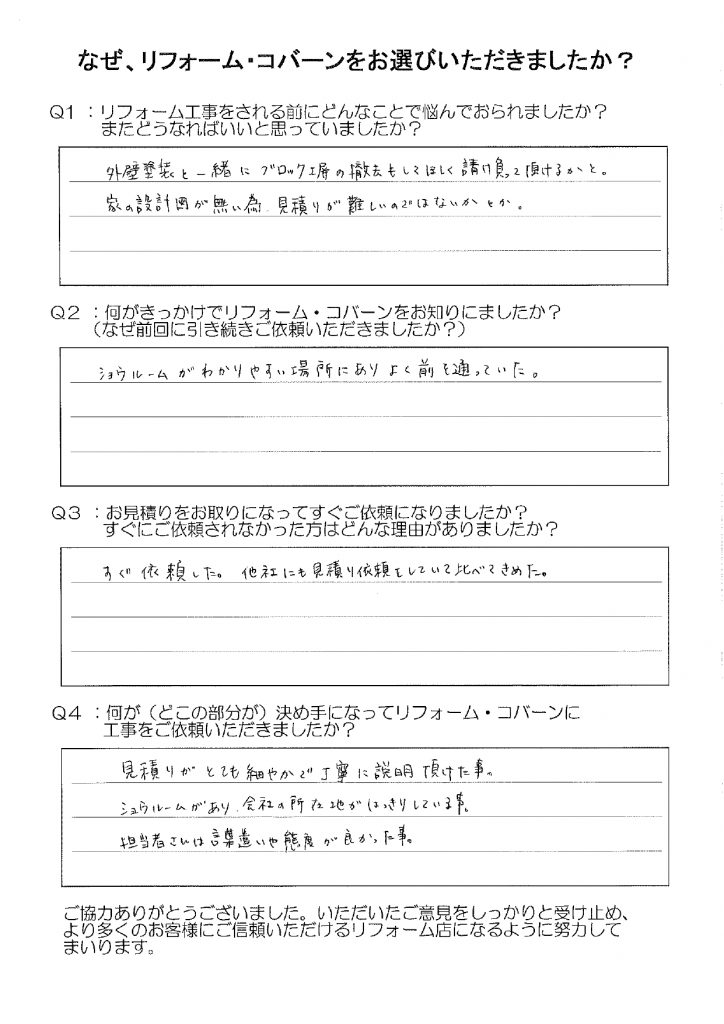 なぜ、リフォーム・コバーンをお選びいただきましたか？
Q1 ：リフォーム工事をされる前にどんなことで悩んでおられましたか？
またどうなればいいと思っていましたか？
外壁塗装と一緒にブロック塀の撤去もしてほしく請け負って頂けるかと。
家の設計図が無い為、見積りが難しいのではないかとか。
Q2 ：何がきっかけでリフォーム・コバーンをお知りにましたか？
（なぜ前回に引き続きご依頼いただきましたか？）
ショウルームがわかりやすい場所にありよく前を通っていた。
Q3 ：お見積りをお取りになってすぐご依頼になりましたか？
すぐにご依頼されなかった方はどんな理由がありましたか？
すぐ依頼した。他社にも見積り依頼をしていて比べてきめた。
Q4 ：何が（どこの部分が）決め手になってリフォーム・コバーンに
工事をご依頼いただきましたか？
見積りがとても細やかで丁寧に説明頂けた事。
ショウルームがあり、会社の所在地がはっきりしている事。
担当者さんは言葉遣いや態度が良かった事。
ご協力ありがとうございました。いただいたご意見をしっかりと受け止め、
より多くのお客様にご信頼いただけるリフォーム店になるように努力して
まいります。